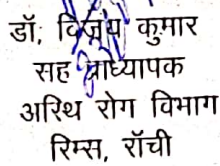 डॉ; विजय कुमार
सह प्राध्यापक
अस्थि रोग विभाग
रिम्स, राँची